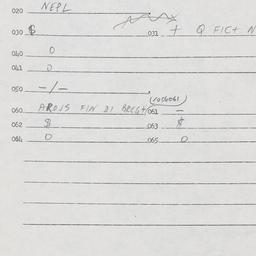 020 NEPL
030 $ 031 + Q FICT N
040 0
041 0
050 -/-
060 FIN DI 061 -
062 $ 063 $
064 0 065 0